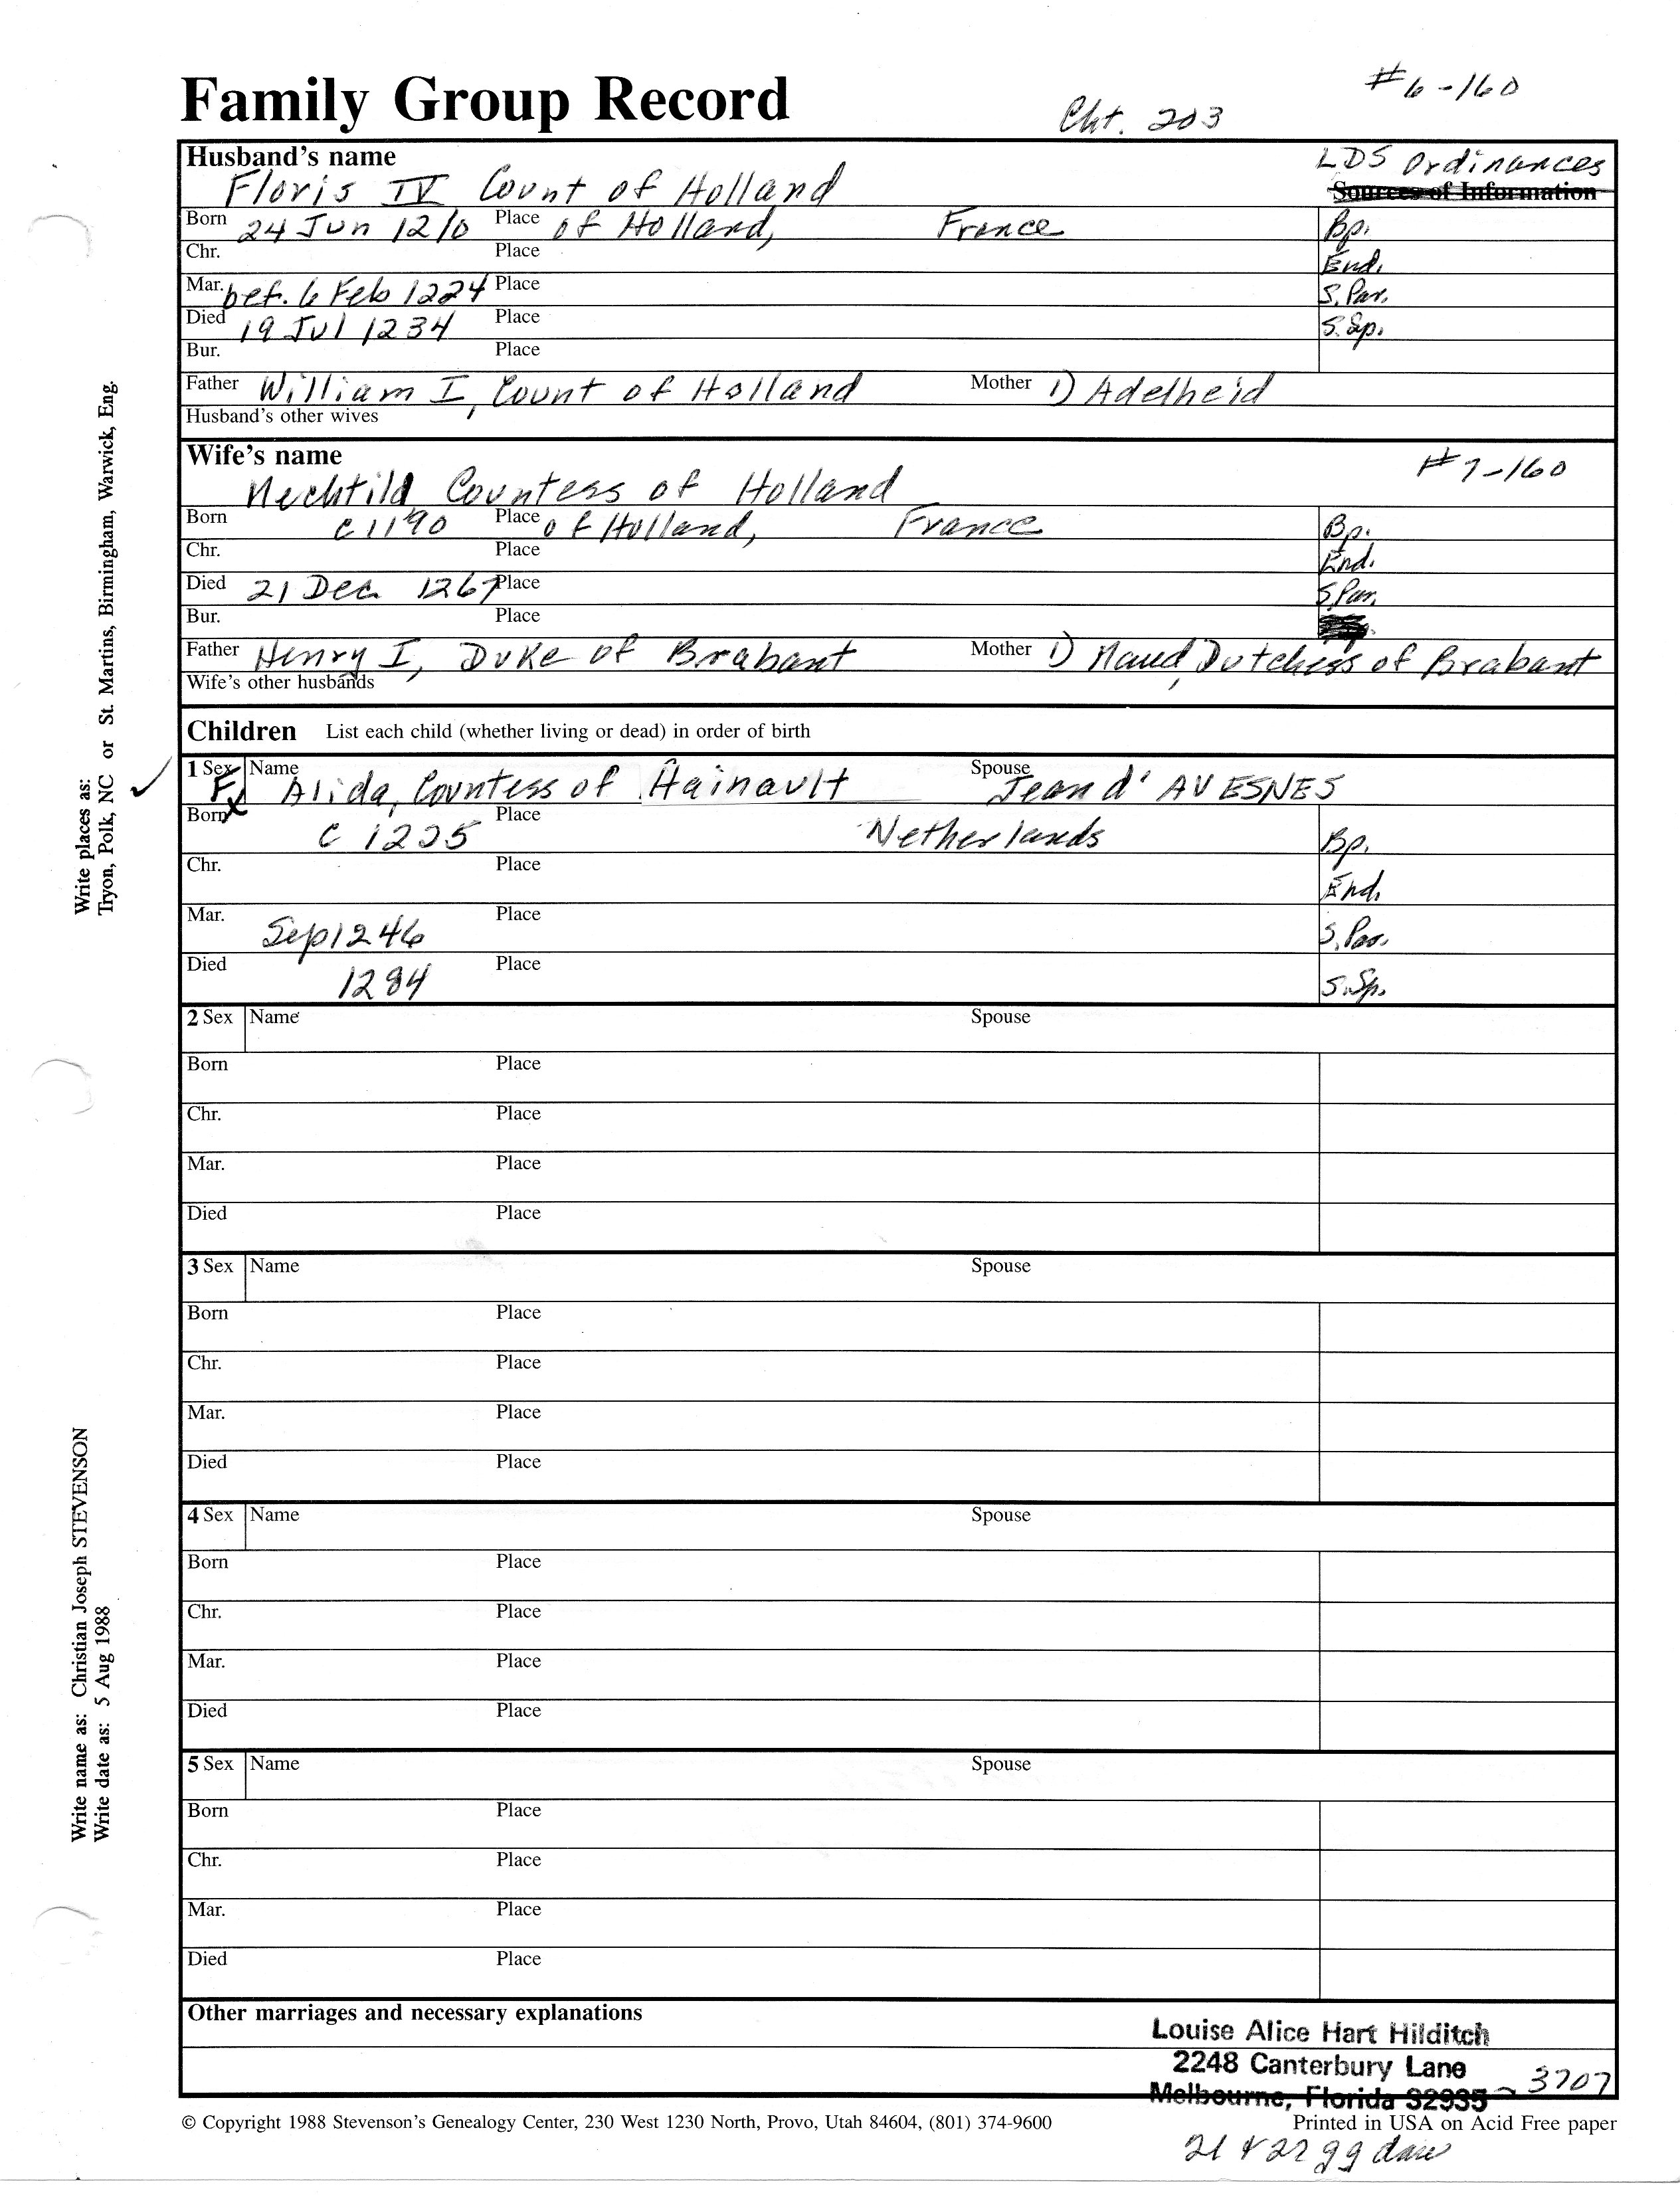 #6-160
Family Group Record
Cht. 203
Husband's name
LDS Ordinances
Floris IV Count of Holland
Sources of Information
Born 24 Jun 1210 Place of Holland, France Bp.
Chr. Place End.
Mar. bef. 6 Feb 1224 Place S. Par.
Died 19 Jul 1234 Place S. Sp.
Bur. Place
Father William I, Count of Holland Mother 1) Adelheid
Husband's other wives
Wife's name #7-160
Mechtild Countess of Holland
Born c 1190 Place of Holland, France Bp.
Chr. Place End.
Died 21 Dec 1267 Place S. Par.
Bur. Place
Father Henry I, Duke of Brabant Mother 1) Maud, Dutchess of Brabant
Wife's other husbands
Children List each child (whether living or dead) in order of birth
1 Sex F Name Alida, Countess of Hainault Spouse Jean d' AVESNES
X
Born c 1225 Place Netherlands Bp.
Chr. Place End.
Mar. Sep 1246 Place S. Par.
Died 1284 Place S. Sp.
2 Sex Name Spouse
Born Place
Chr. Place
Mar. Place
Died Place
3 Sex Name Spouse
Born Place
Chr. Place
Mar. Place
Died Place
4 Sex Name Spouse
Born Place
Chr. Place
Mar. Place
Died Place
5 Sex Name Spouse
Born Place
Chr. Place
Mar. Place
Died Place
Other marriages and necessary explanations
Louise Alice Hart Hilditch
2248 Canterbury Lane
Melbourne, Florida 32935 - 3707
© Copyright 1988 Stevenson's Genealogy Center, 230 West 1230 North, Provo, Utah 84604, (801) 374-9600 Printed in USA on Acid Free paper
21 & 22 gg dau
Write places as:
Tryon, Polk, NC or St. Martins, Birmingham, Warwick, Eng.
Write name as: Christian Joseph STEVENSON
Write date as: 5 Aug 1988